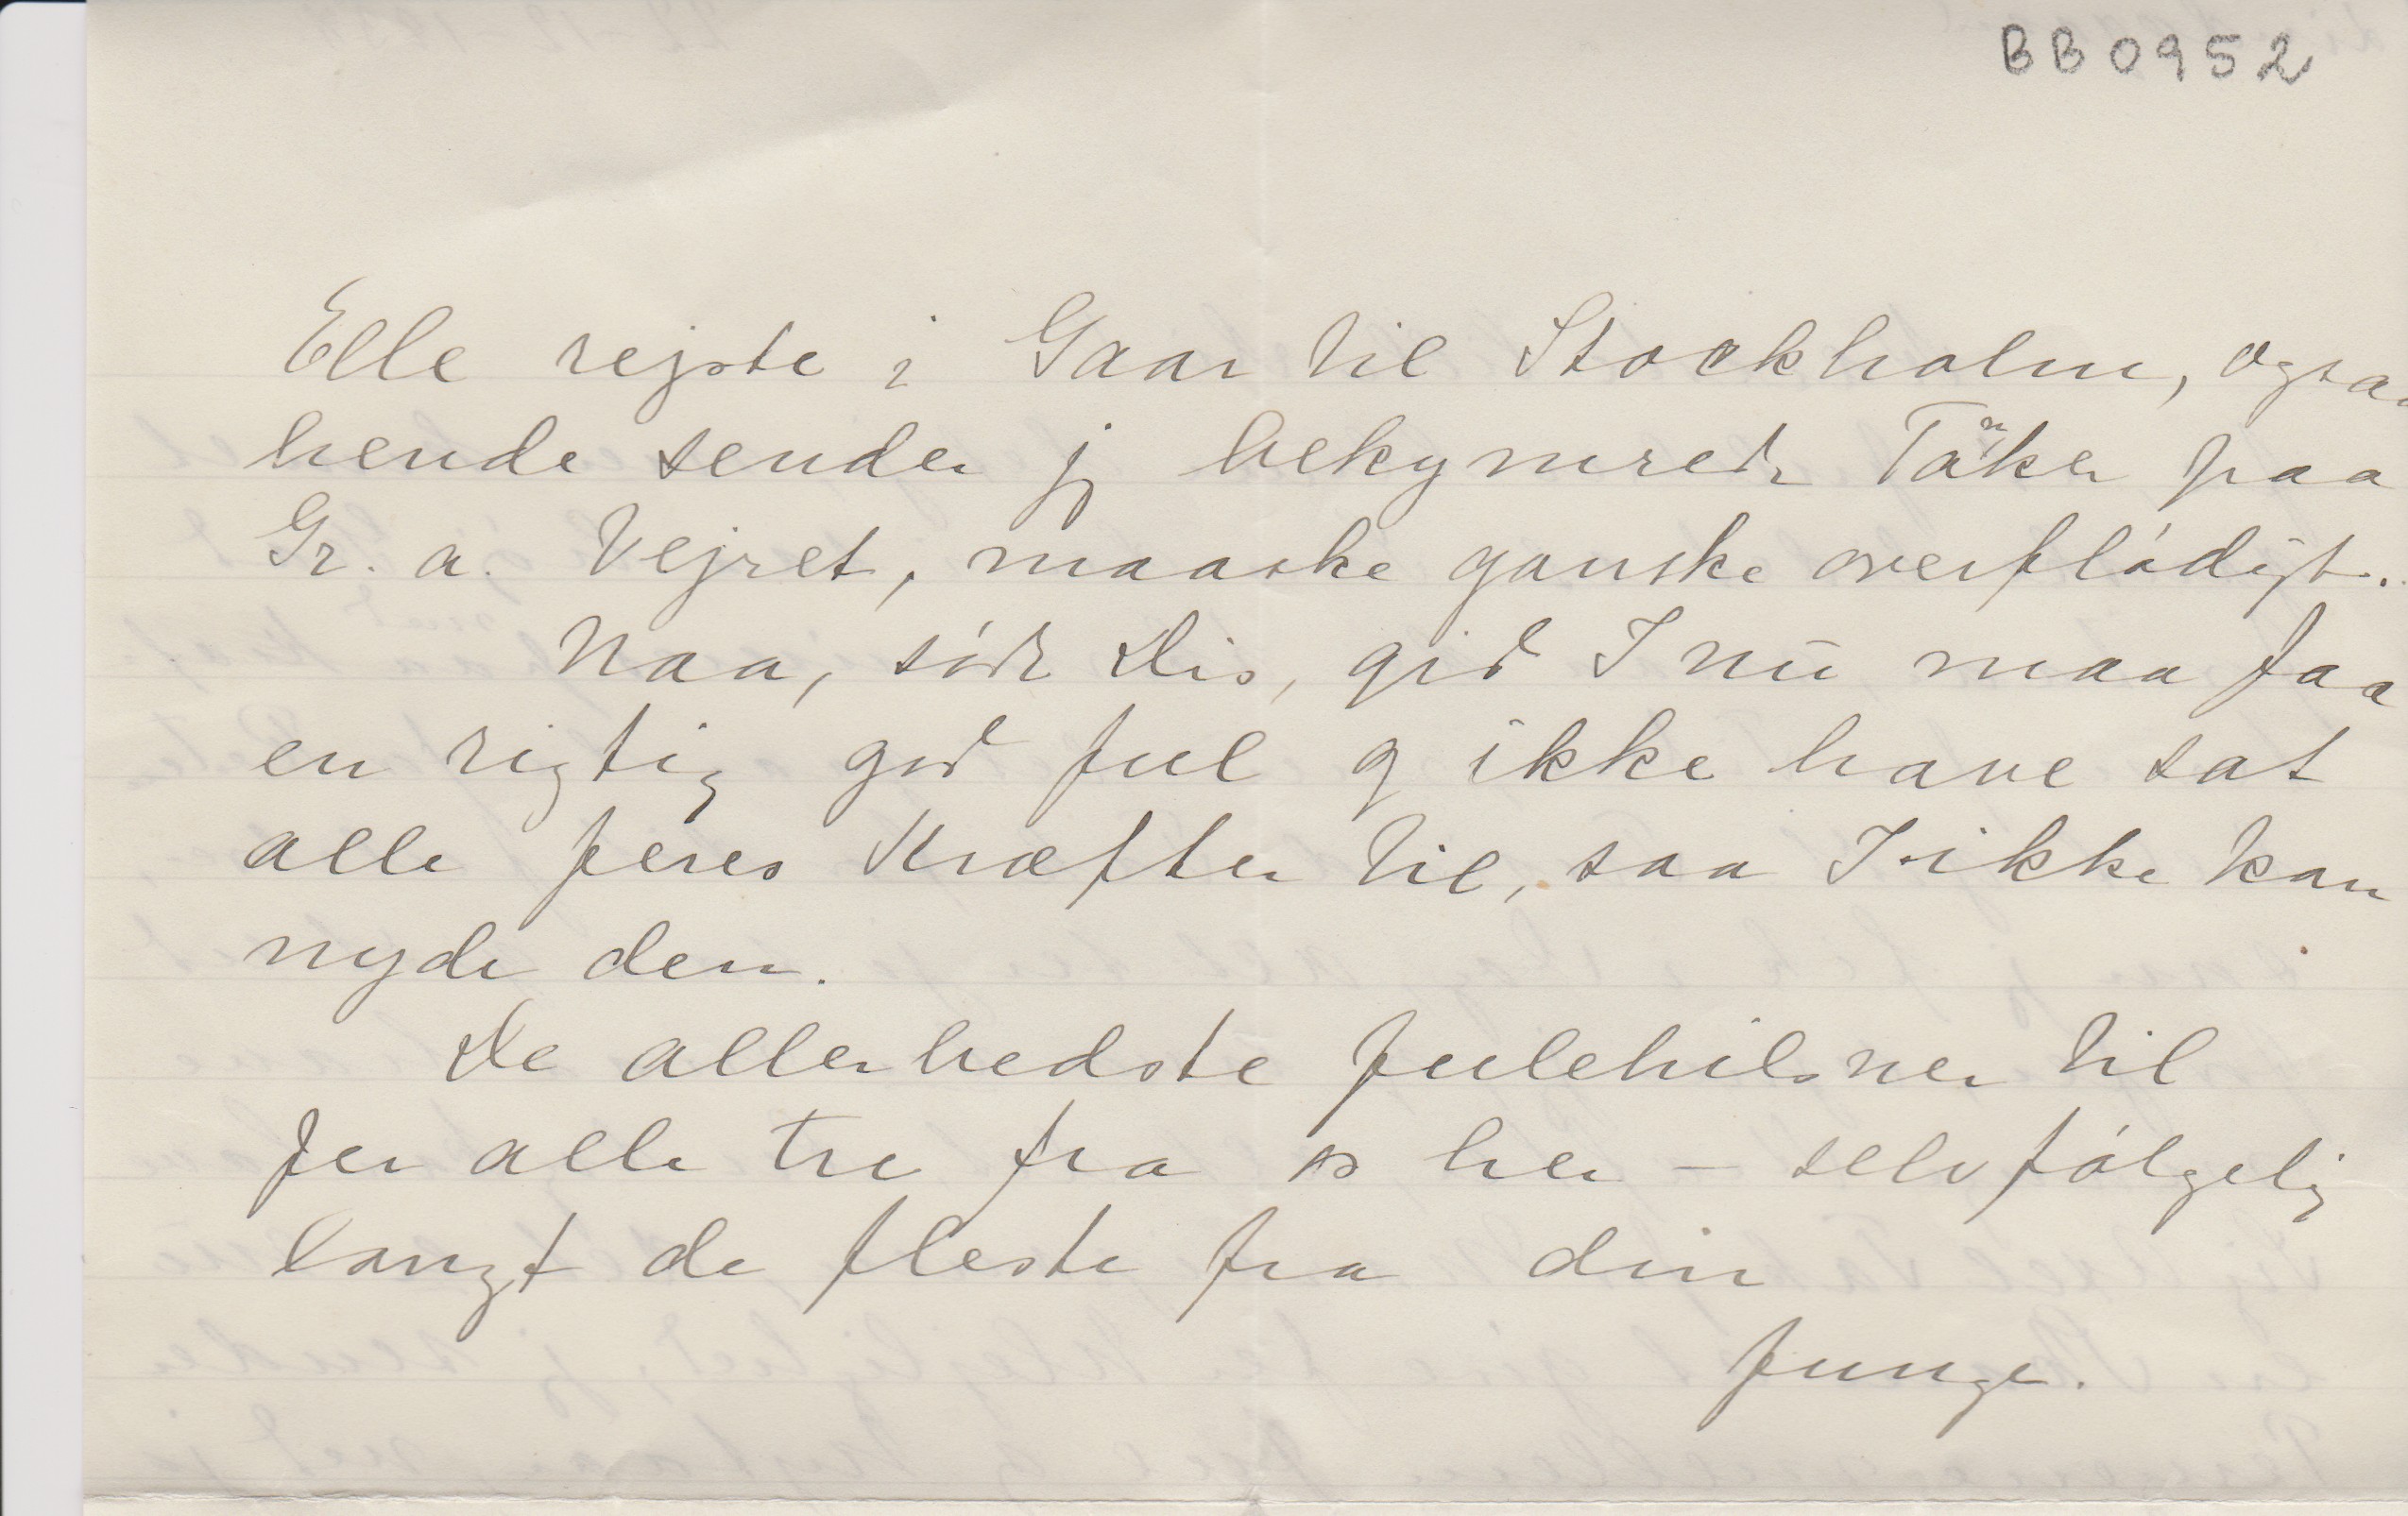 BB0952
Elle rejste i Gaar til Stockholm, ogsaa
hende sender jeg bekymrede Tanker paa
Gr. a. Vejret, maaske ganske overflødigt.
Naa, søde Dis, gid I nu maa faa
en rigtig god Jul og ikke have sat
alle Jeres Kræfter til, saa I ikke kan
nyde den.
De allerbedste Julehilsner til
Jer alle tre fra os her – selvfølgelig
langt de fleste fra din
Junge.